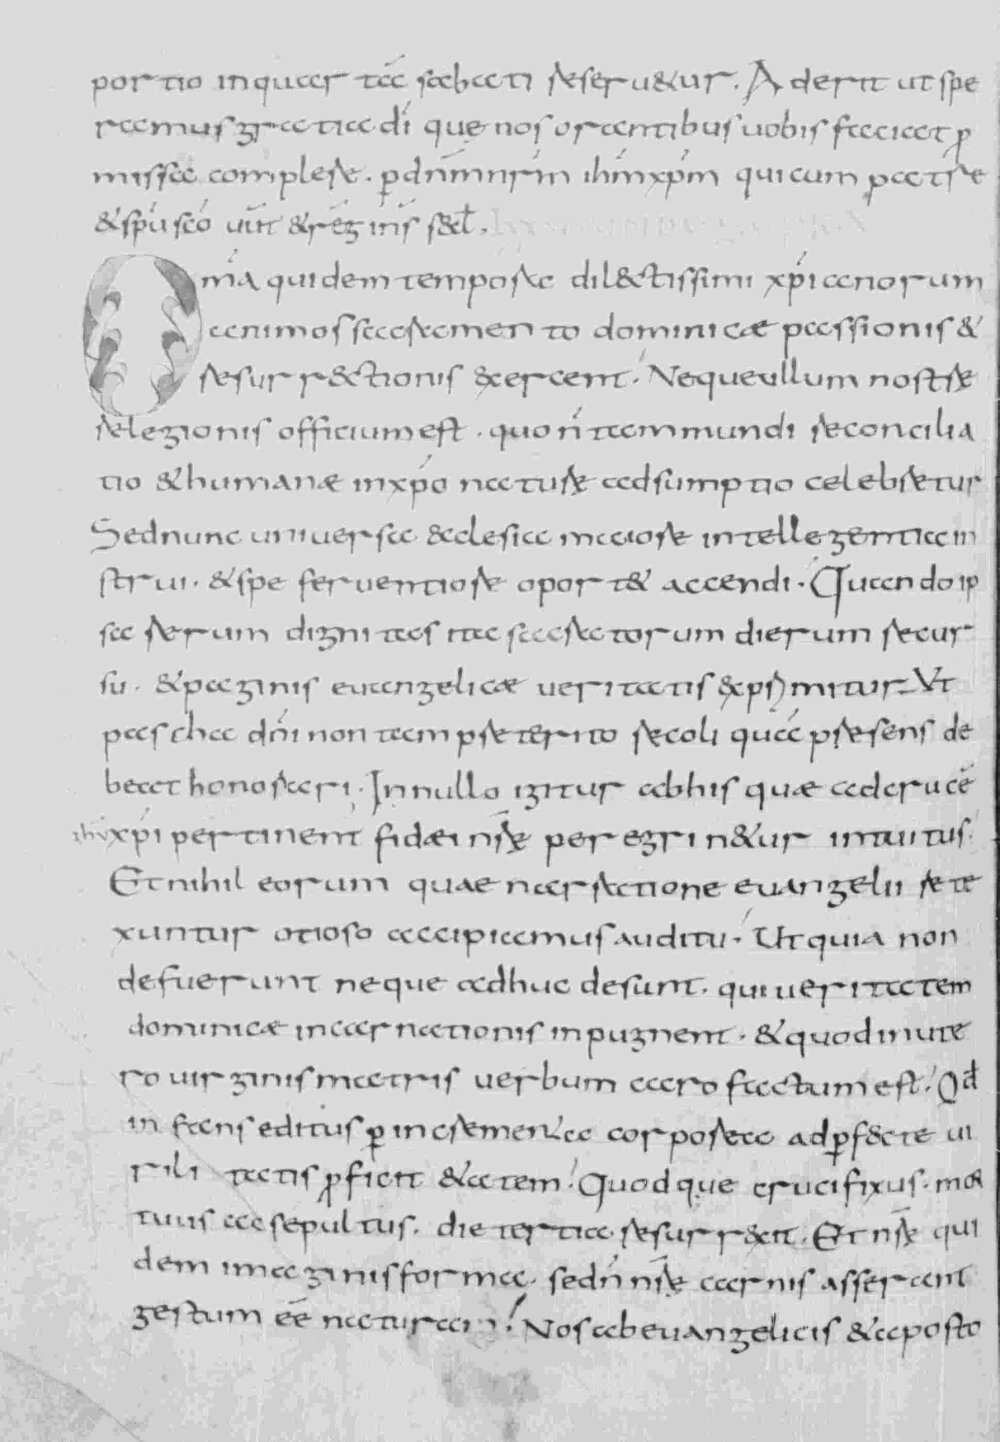 portio in quarta sabbati reseruetur. Aderit ut spe
ramus gratia dī que nos orantibus uobis faciat ꝓ
missa complere. ꝑ dn̄m nr̄m ihm̄ xpm̄ qui cum patre
& spū scō uiū & reg̃ in s̄ s̄c̄l.
Om̄a quidem tempora dilectissimi xp̄ianorum
animos sacramento dominicæ passionis &
resurrectionis exercent. Neque ullum nostrę
relegionis officium est. quo n̄ tam mundi reconcilia
tio & humanæ in xp̄o naturę adsumptio celebretur
Sed nunc uniuersa ecclesia maiore intellegentia in
strui. & spe feruentiore oportet accendi. Quando ip
sa rerum dignitas ita sacratorum dierum recur
su. & paginis euangelicæ ueritatis exprimitur. Ut
pascha dn̄i non tam preterito recoli quā presens de
beat honorari. In nullo igitur ab his quæ ad crucē
ihū xp̄i pertinent fidæi nrę peregrinetur intuitus.
Et nihil eorum quae narratione euangelii rete
xuntur otioso accipiamus auditu. Ut quia non
defuerunt neque adhuc desunt. qui ueritatem
dominicæ incarnationis inpugnent. & quod in ute
ro uirginis matris uerbum caro factum est. Qd
infans editus ꝑ incrementa corporea ad ꝑfecte ui
rilitatis ꝓficit ætatem. Quodque crucifixus. mor
tuus ac sepultus. die tertia resurrexit. Et nrę qui
dem imaginis forma. sed n̄ nrę carnis asserant
gestum eē naturam. Nos ab euangelicis & aposto